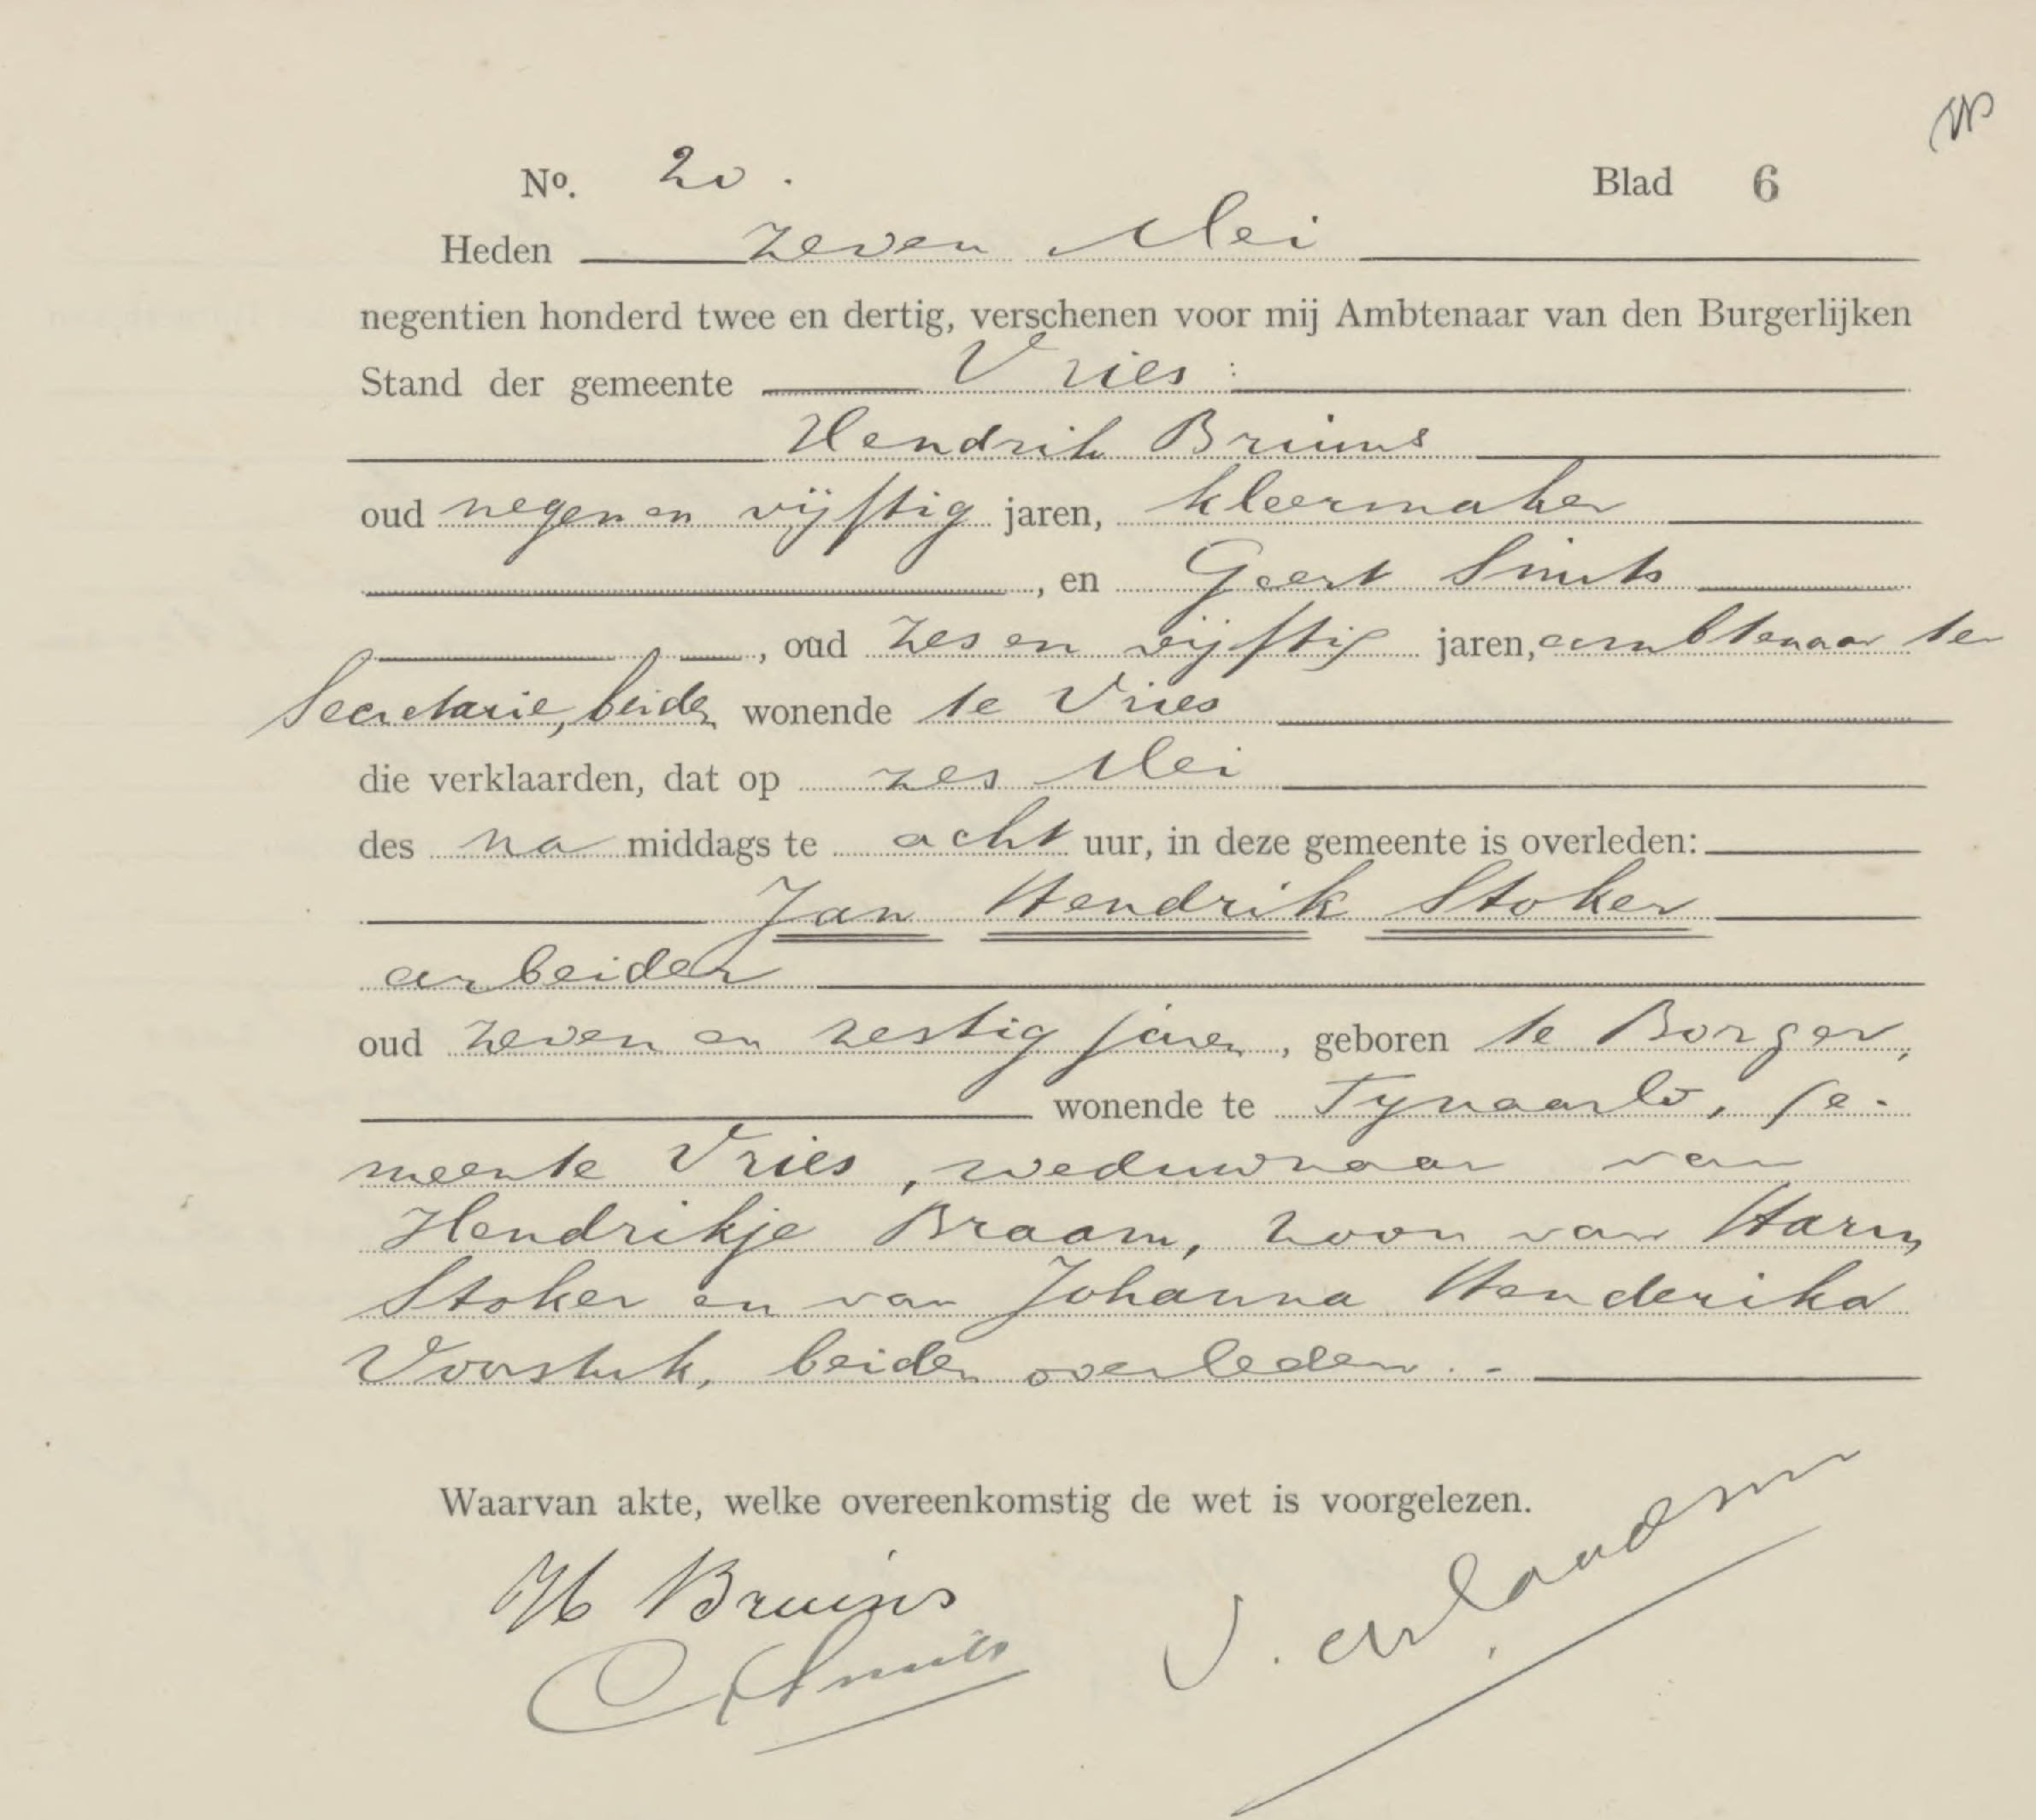 No. 20. Blad 6
Heden zeven Mei
negentien honderd twee en dertig, verschenen voor mij Ambtenaar van den Burgerlijken
Stand der gemeente Vries:
Hendrik Bruins
oud negen en vijftig jaren, kleermaker
, en Geert Smits
, oud zes en vijftig jaren, ambtenaar ter
Secretarie, beiden wonende te Vries
die verklaarden, dat op zes Mei
des na middags te acht uur, in deze gemeente is overleden:
Jan Hendrik Stoker
arbeider
oud zeven en zestig jaren, geboren te Borger,
wonende te Tynaarlo, ge-
meente Vries, weduwnaar van
Hendrikje Braam, zoon van Harm
Stoker en van Johanna Henderika
Voorstuk, beiden overleden. -
Waarvan akte, welke overeenkomstig de wet is voorgelezen.
H Bruins
Smits